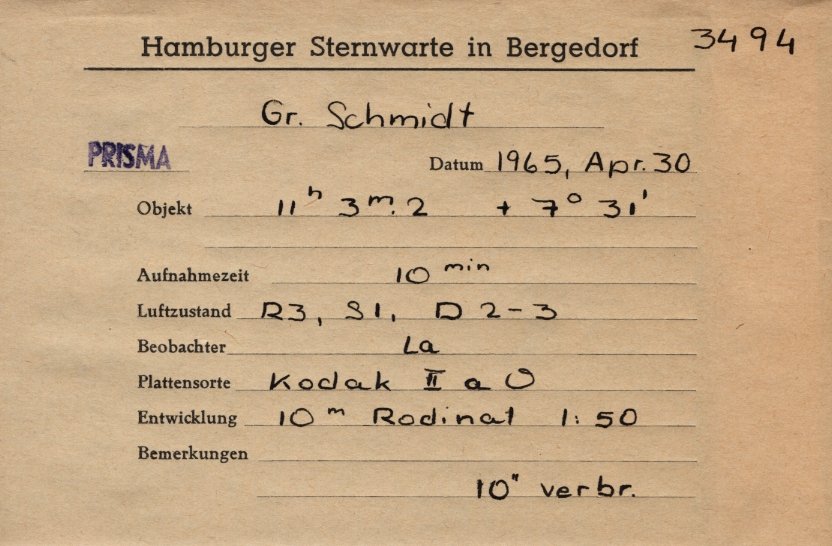 Hamburger Sternwarte in Bergedorf 3494
Gr. Schmidt
PRISMA Datum 1965, Apr. 30
Objekt 11ʰ 3ᵐ.2 + 7° 31'
Aufnahmezeit 10 ᵐⁱⁿ
Luftzustand R3, S1, D 2-3
Beobachter La
Plattensorte Kodak II a O
Entwicklung 10ᵐ Rodinal 1:50
Bemerkungen
10" verbr.